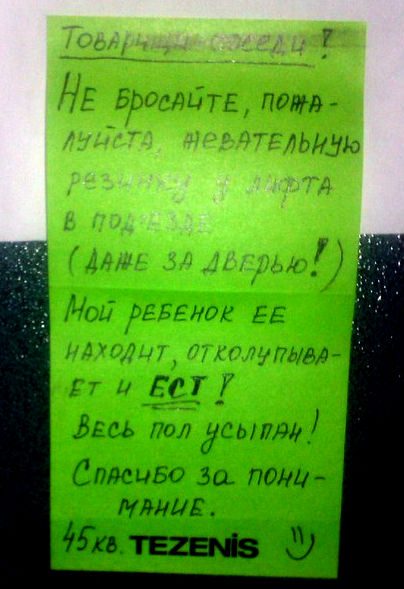 Товарищи соседи!
Не бросайте, пожа-
луйста, жевательную
резинку у лифта
в подъезде
(даже за дверью!)
Мой ребенок ее
находит, отколупыва-
ет и ЕСТ!
Весь пол усыпан!
Спасибо за пони-
мание.
45 кв. TEZENIS